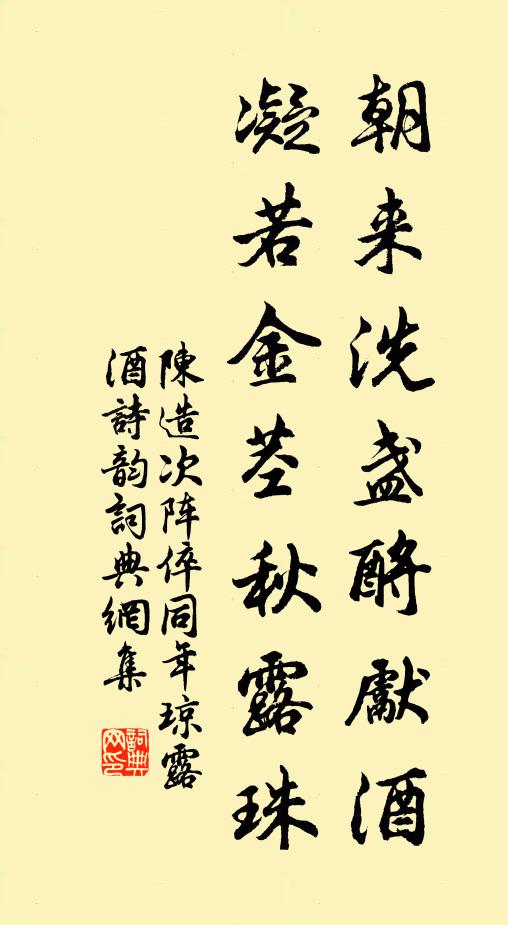 朝来洗盏酹獻酒
凝若金茎秋露珠
陳造次阵倅同年琼露
酒詩韵詞典網集
詞典
网印